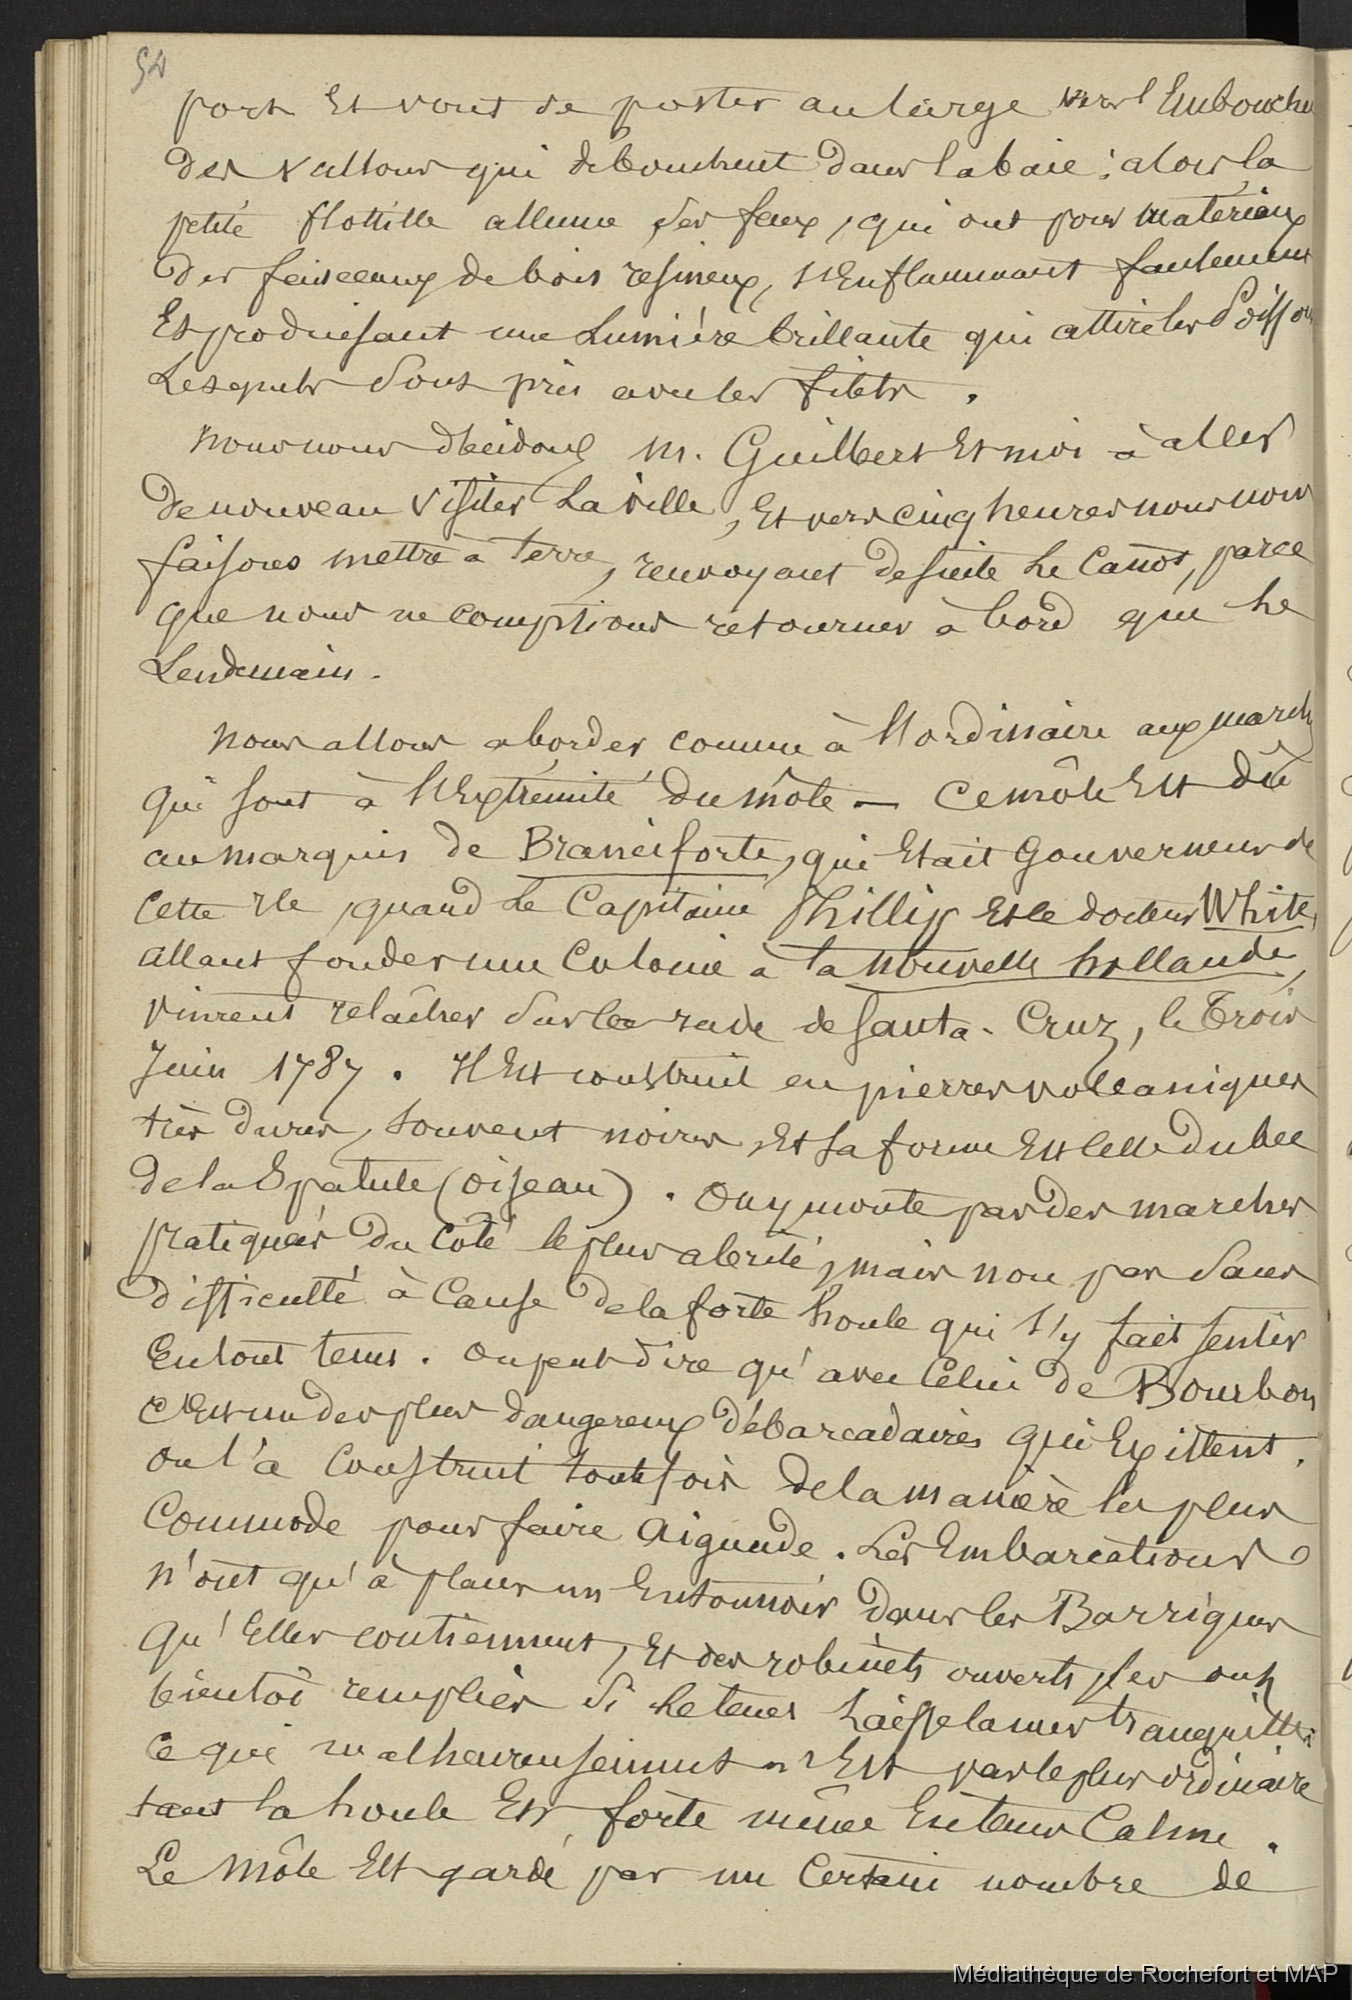 54
port Et vont se poster au large vers l'Embouchu
des vallons qui débouchent dans la baie ; alors la
petite flottille allume ses feux, qui ont pour matériaux
des faisceaux de bois resineux, s'Enflammant
Et produisant une Lumière brillante qui attire les Poissons
Lesquels sont pris avec les filets.
Nous nous décidons M. Guilbert Et moi à aller
de nouveau visiter La ville, Et vers cinq heures nous nous
faisons mettre à terre, renvoyant de suite Le Canot, parce
que nous ne comptions retourner à bord que Le
Lendemain.
Nous allons aborder comme à l'ordinaire aux march
qui sont à l'Extrémité du môle — Ce môle Est dû
au marquis de Branciforte, qui Etait Gouverneur de
Cette Ile, quand Le Capitaine Phillip Et le docteur White,
allant fonder une Colonie à la Nouvelle hollande,
vinrent relâcher sur la rade de Santa-Cruz, le Trois
Juin 1787. Il Est construit en pierres volcaniques
très dures, souvent noires, Et sa forme Est celle du bec
de la Spatule (oiseau). On y monte par des marches
pratiquées du côté le plus abrité, mais non pas sans
difficulté à Cause de la forte houle qui s'y fait sentir
En tout tems. On peut dire qu'avec Celui de Bourbon
c'Est un des plus dangereux débarcadaires qui Existent.
On l'a Construit toutefois de la manière la plus
Commode pour faire aiguade. Les Embarcations
n'ont qu'à placer un Entonnoir dans les Barriques
qu'Elles contiennent, Et des robinets ouverts, les ont
bientôt remplies si Le tems Laisse la mer tranquille
Ce qui malheureusement n'Est pas le plus ordinaire
tant la houle Est forte même En tems Calme.
Le Môle Est gardé par un Certain nombre de
Médiathèque de Rochefort et MAP